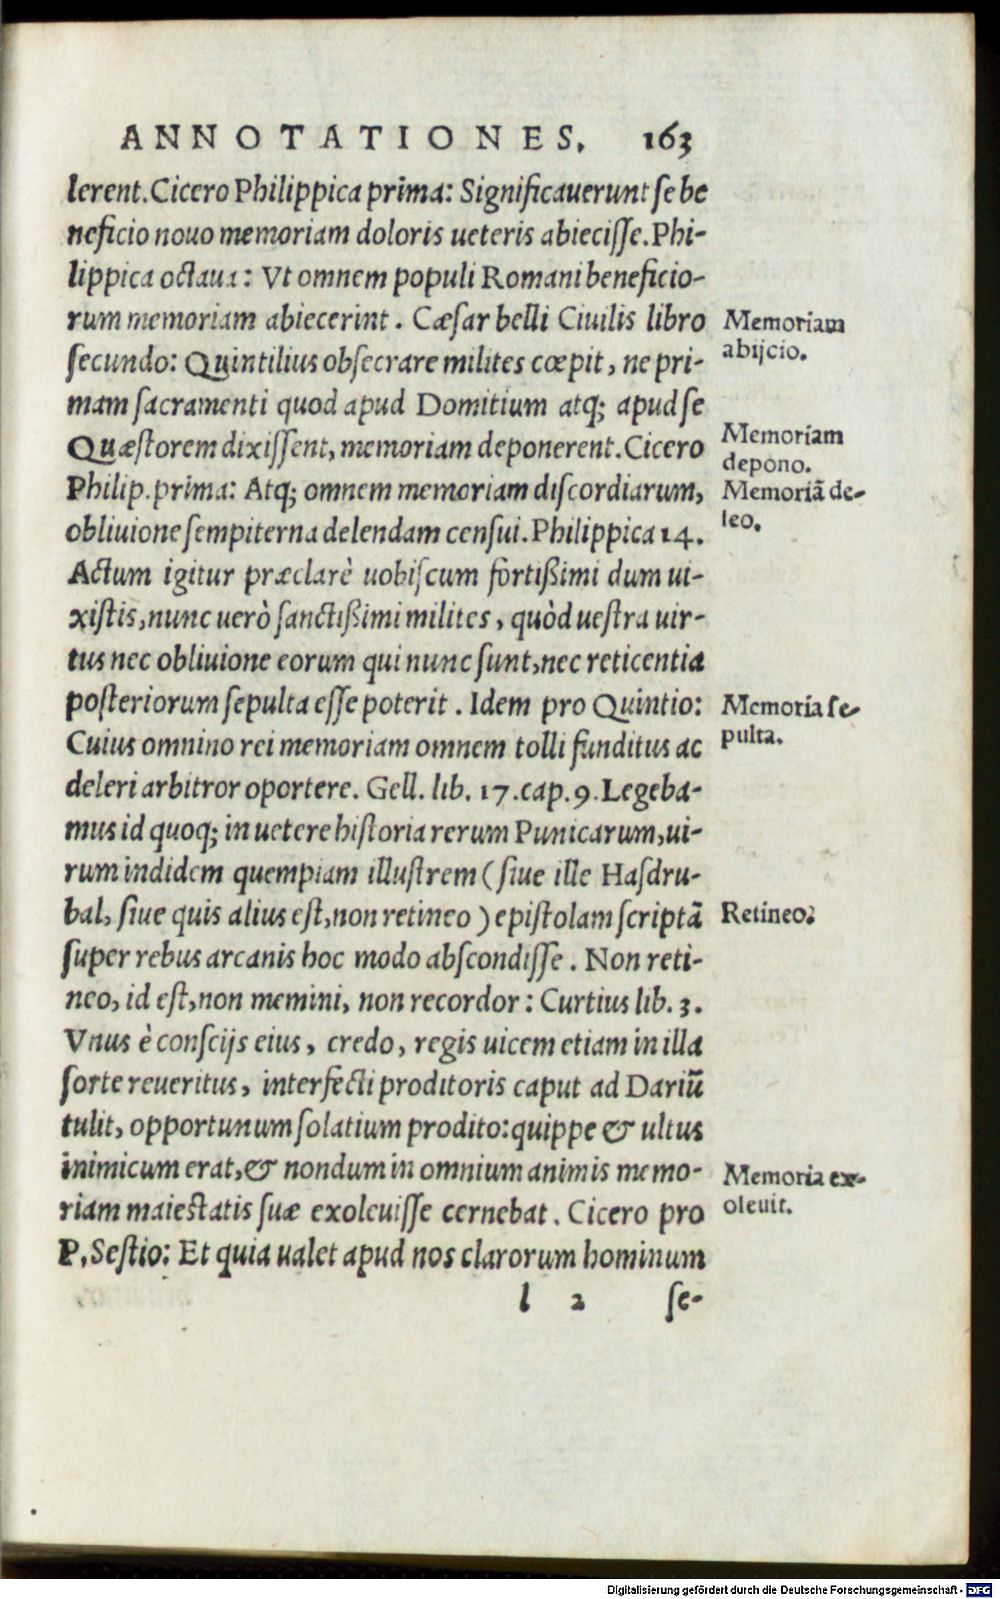 ANNOTATIONES. 163
lerent. Cicero Philippica prima: Significauerunt se be
neficio nouo memoriam doloris ueteris abiecisse. Phi-
lippica octaua: Vt omnem populi Romani beneficio-
rum memoriam abiecerint. Cæsar belli Ciuilis libro
secundo: Quintilius obsecrare milites cœpit, ne pri-
mam sacramenti quod apud Domitium atq; apud se
Quæstorem dixissent, memoriam deponerent. Cicero
Philip. prima: Atq; omnem memoriam discordiarum,
obliuione sempiterna delendam censui. Philippica 14.
Actum igitur præclarè uobiscum fortißimi dum ui-
xistis, nunc uerò sanctißimi milites, quòd uestra uir-
tus nec obliuione eorum qui nunc sunt, nec reticentia
posteriorum sepulta esse poterit. Idem pro Quintio:
Cuius omnino rei memoriam omnem tolli funditus ac
deleri arbitror oportere. Gell. lib. 17. cap. 9. Legeba-
mus id quoq; in uetere historia rerum Punicarum, ui-
rum indidem quempiam illustrem (siue ille Hasdru-
bal, siue quis alius est, non retineo) epistolam scriptã
super rebus arcanis hoc modo abscondisse. Non reti-
neo, id est, non memini, non recordor: Curtius lib. 3.
Vnus è conscijs eius, credo, regis uicem etiam in illa
sorte reueritus, interfecti proditoris caput ad Dariũ
tulit, opportunum solatium prodito: quippe & ultus
inimicum erat, & nondum in omnium animis memo-
riam maiestatis suæ exoleuisse cernebat. Cicero pro
P. Sestio: Et quia ualet apud nos clarorum hominum
l 2 se-
Memoriam
abijcio.
Memoriam
depono.
Memoriã de-
leo.
Memoria se-
pulta.
Retineo.
Memoria ex-
oleuit.
Digitalisierung gefördert durch die Deutsche Forschungsgemeinschaft - DFG